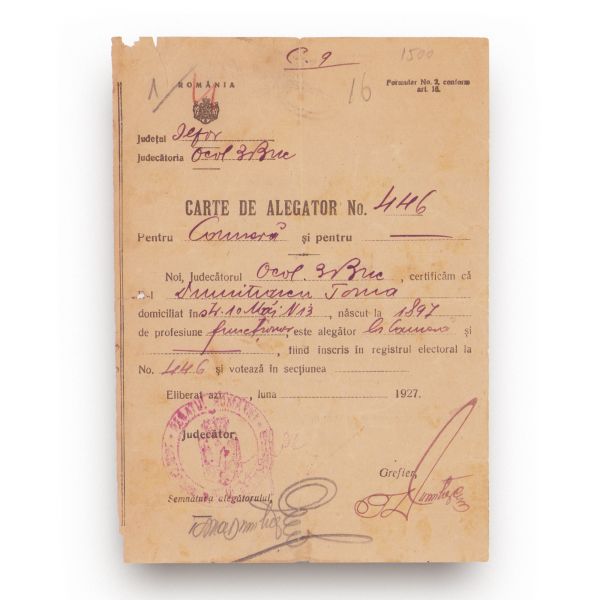 C. 9
1500
1/
16
ROMÂNIA
Formular No. 2, conform
art. 18.
Județul Ilfov
Judecătoria Ocol 3 Buc
CARTE DE ALEGATOR No. 446
Pentru Cameră și pentru
Noi, Judecătorul Ocol. 3 Buc, certificăm că
D-l Dumitrescu Toma
domiciliat în str. 10 Mai N 13, născut la 1897
de profesiune funcționar, este alegător la Camera și
, fiind înscris în registrul electoral la
No. 446 și votează în secțiunea
Eliberat azi, luna 1927.
REGATUL ROMÂNIEI
Judecător,
Grefier,
Semnătura alegătorului,